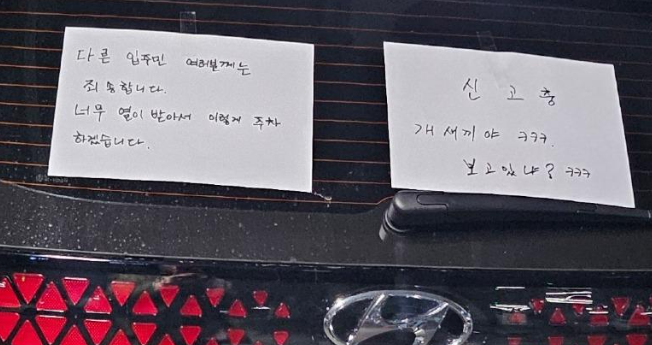 다른 입주민 여러분께는
죄송합니다.
너무 열이 받아서 이렇게 주차
하겠습니다.
신고충
개새끼야 ㅋㅋㅋ
보고있냐? ㅋㅋㅋ